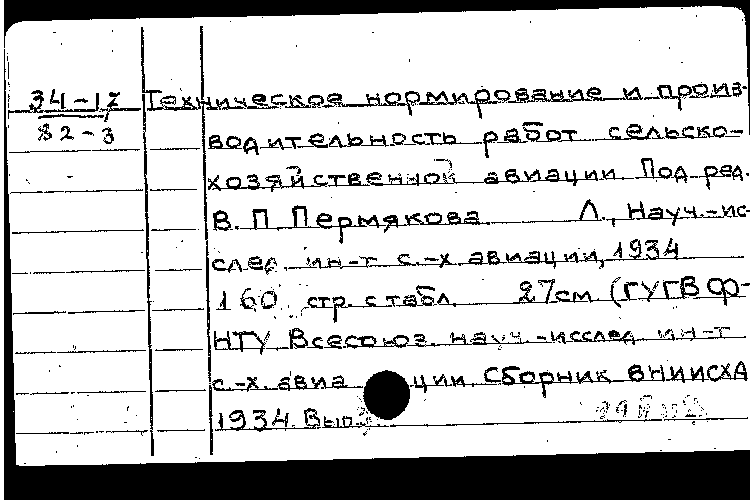 34-12 Техническое нормирование и произ-
82-3
водительность работ сельско-
хозяйственной авиации. Под ред.
В. П. Пермякова. Л., Науч.-ис-
след. ин-т с.-х. авиации, 1934
160 стр. с табл. 27см (ГУГВФ-
НТУ Всесоюз. науч.-исслед. ин-т
с.-х. авиации. Сборник ВНИИСХА
1934. Вып.